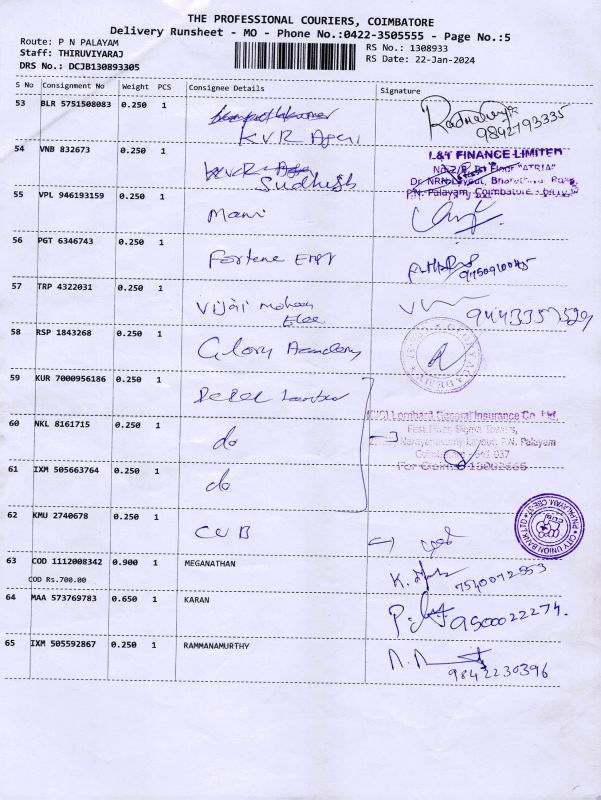 THE PROFESSIONAL COURIERS, COIMBATORE
Delivery Runsheet - MO - Phone No.:0422-3505555 - Page No.:5
Route: P N PALAYAM
Staff: THIRUVIYARAJ
DRS No.: DCJB130893305
RS No.: 1308933
RS Date: 22-Jan-2024
S No Consignment No Weight PCS Consignee Details Signature
53 BLR 5751508083 0.250 1
KVR Agri
9842793335
54 VNB 832673 0.250 1
Sudhish
L&T FINANCE LIMITED
P.N. Palayam, Coimbatore
55 VPL 946193159 0.250 1 Mani
56 PGT 6346743 0.250 1 Fortune
57 TRP 4322031 0.250 1 Vijai Mohan
Elec
58 RSP 1843268 0.250 1 Glory Academy
59 KUR 7000956186 0.250 1
ICICI Lombard General Insurance Co. Ltd,
First Floor, Sigma Towers,
60 NKL 8161715 0.250 1 do
Narayanasamy Layout, P.N. Palayam
Coimbatore - 641 037
61 IXM 505663764 0.250 1 do
62 KMU 2740678 0.250 1 CUB
CITY UNION BANK LTD
63 COD 1112008342 0.900 1 MEGANATHAN
COD Rs.700.00
64 MAA 573769783 0.650 1 KARAN
9500022274.
65 IXM 505592867 0.250 1 RAMMANAMURTHY
9842230396